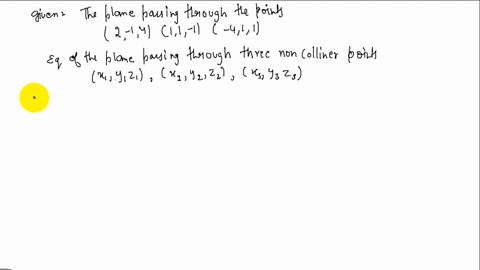 Given: The plane passing through the points
(2,-1,4) (1,1,-1) (-4,1,1)
Eq of the plane passing through three non colliner point
(x₁,y₁,z₁), (x₂,y₂,z₂), (x₃,y₃ z₃)